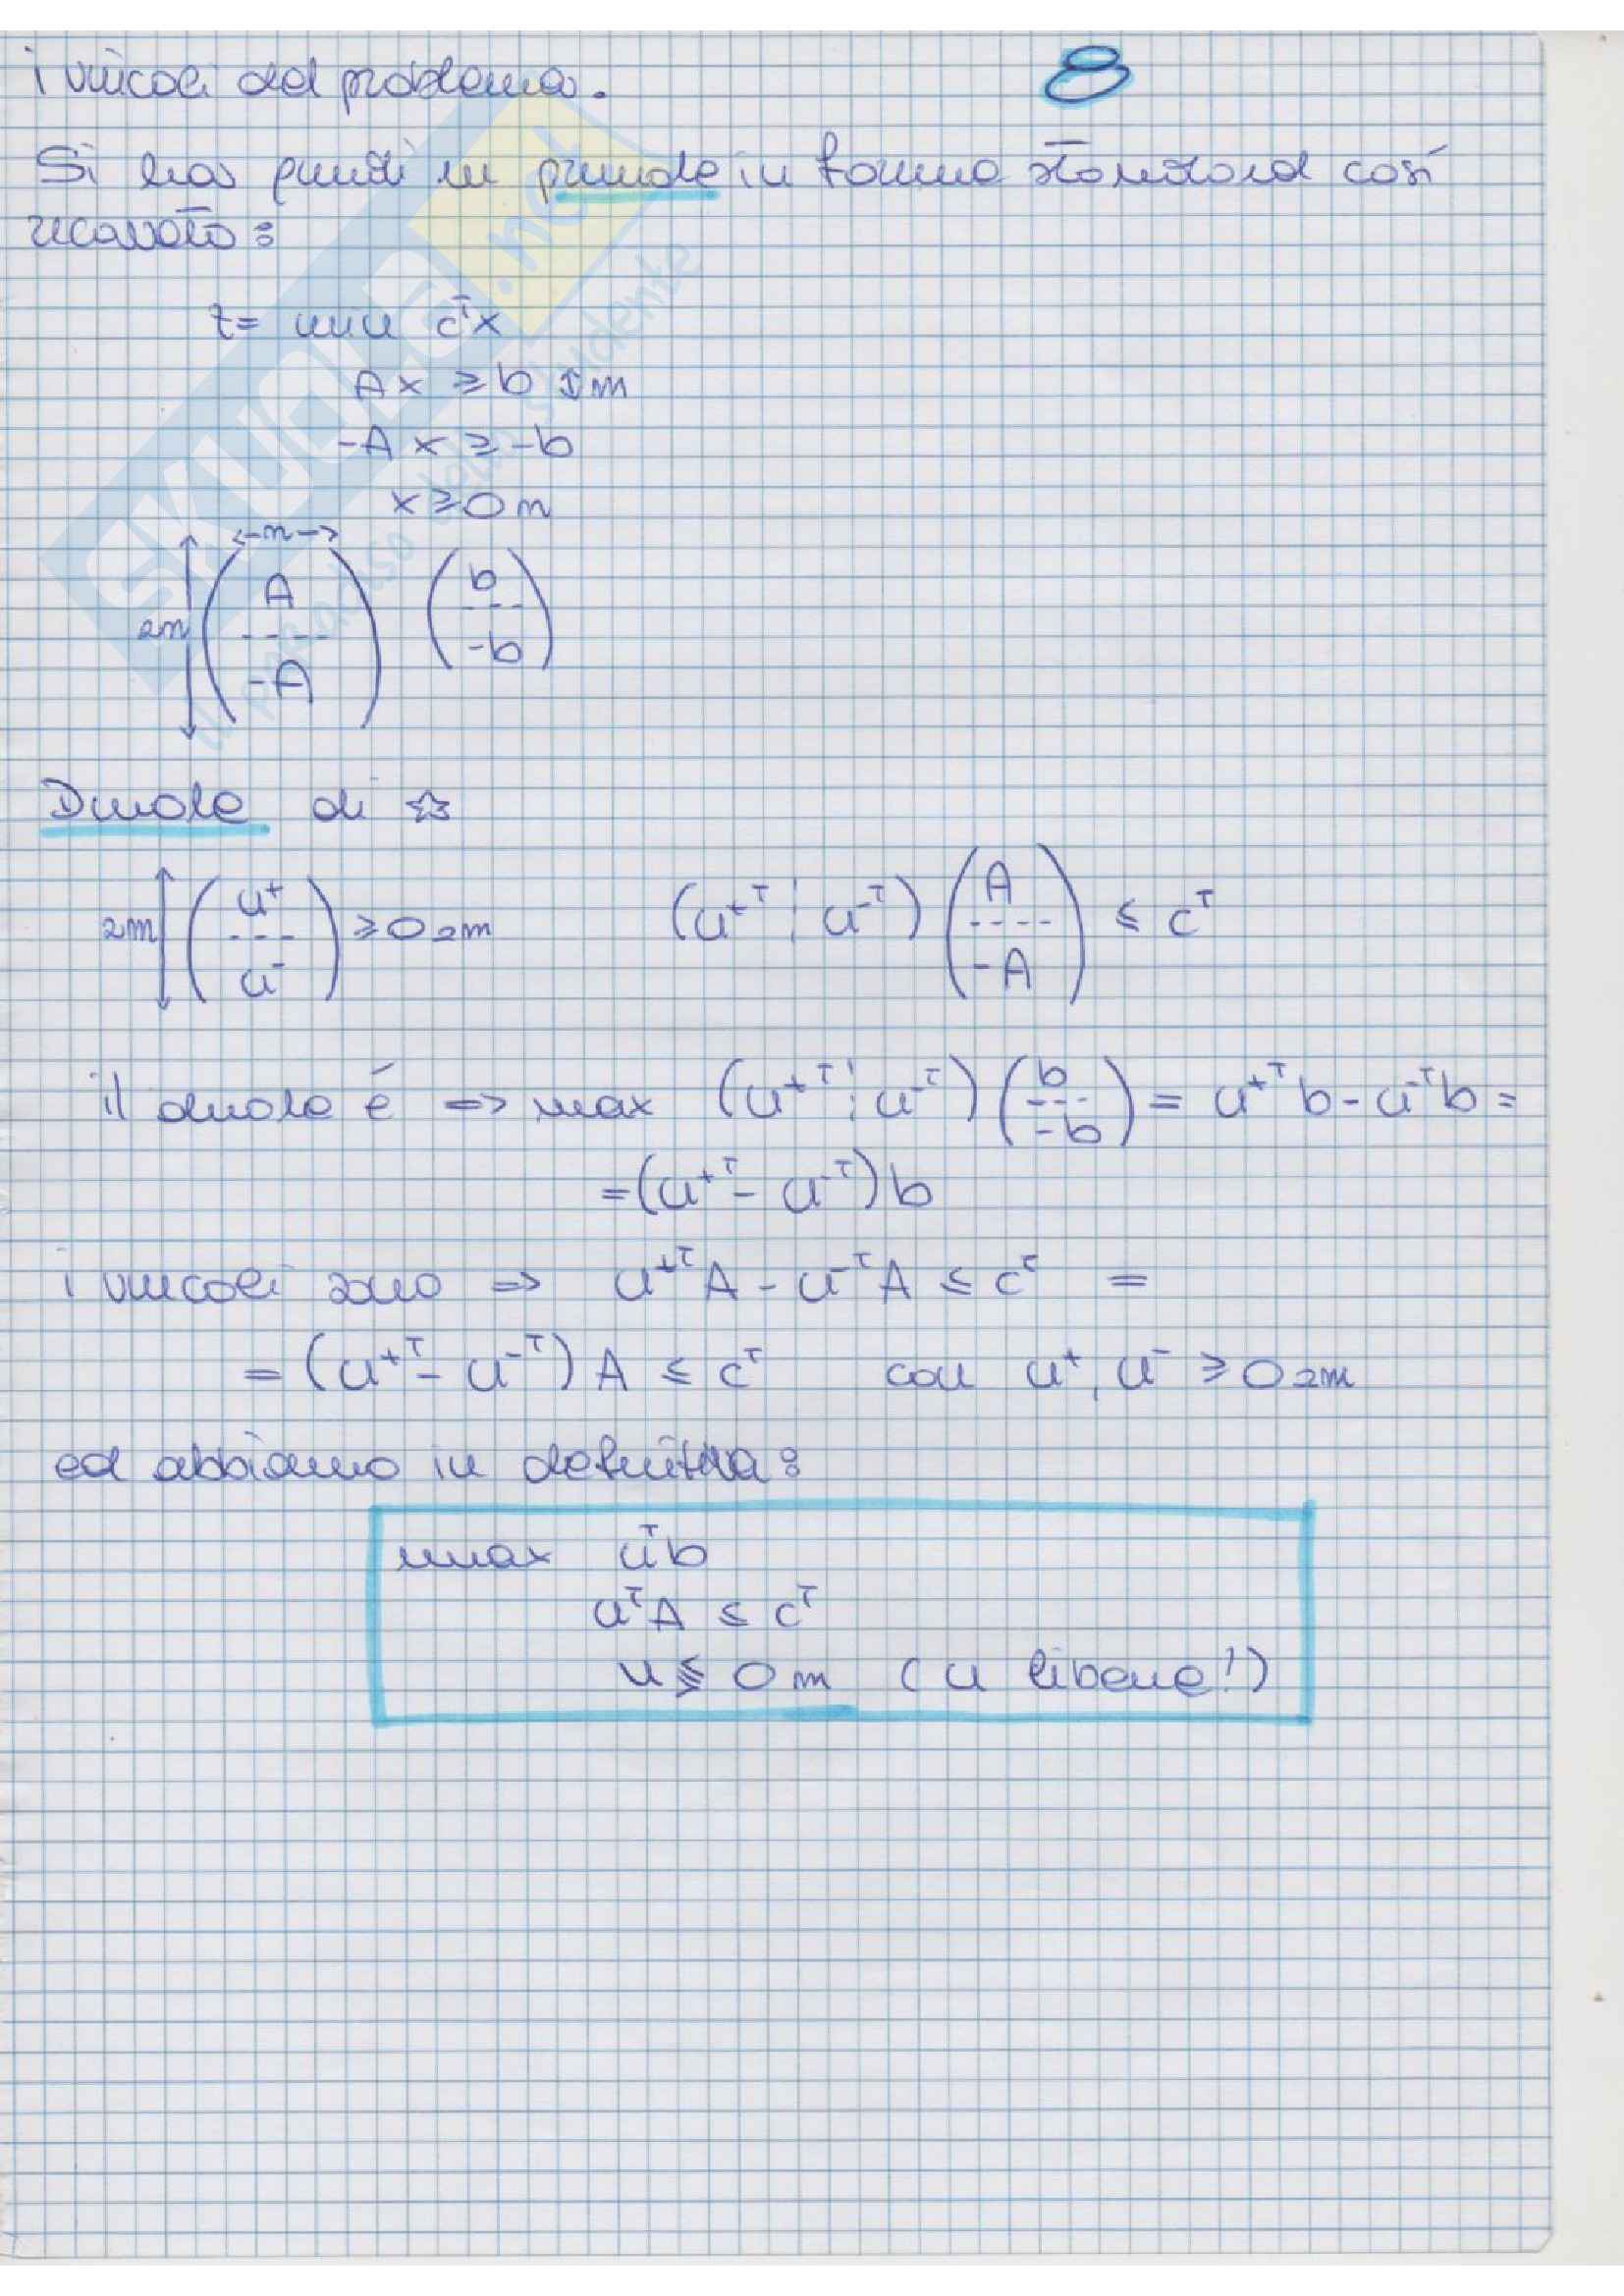 i vincoli del problema.
8
Si ha quindi un primale in forma standard così
ricavato:
z= min cᵀx
Ax ≥ b
-Ax ≥ -b
x ≥ 0n
←n→
2m ( A / -A ) ( b / -b )
Duale di ☆
2m ( u⁺ / u⁻ ) ≥ 0 2m (u⁺ᵀ ¦ u⁻ᵀ) ( A / -A ) ≤ cᵀ
il duale é ⇒ max (u⁺ᵀ ¦ u⁻ᵀ) ( b / -b ) = u⁺ᵀb - u⁻ᵀb =
= (u⁺ᵀ - u⁻ᵀ) b
i vincoli sono ⇒ u⁺ᵀA - u⁻ᵀA ≤ cᵀ =
= (u⁺ᵀ - u⁻ᵀ) A ≤ cᵀ con u⁺, u⁻ ≥ 0 2m
ed abbiamo in definitiva:
max uᵀb
uᵀA ≤ cᵀ
u ⪋ 0 m (u libere!)
SKUOLA.net